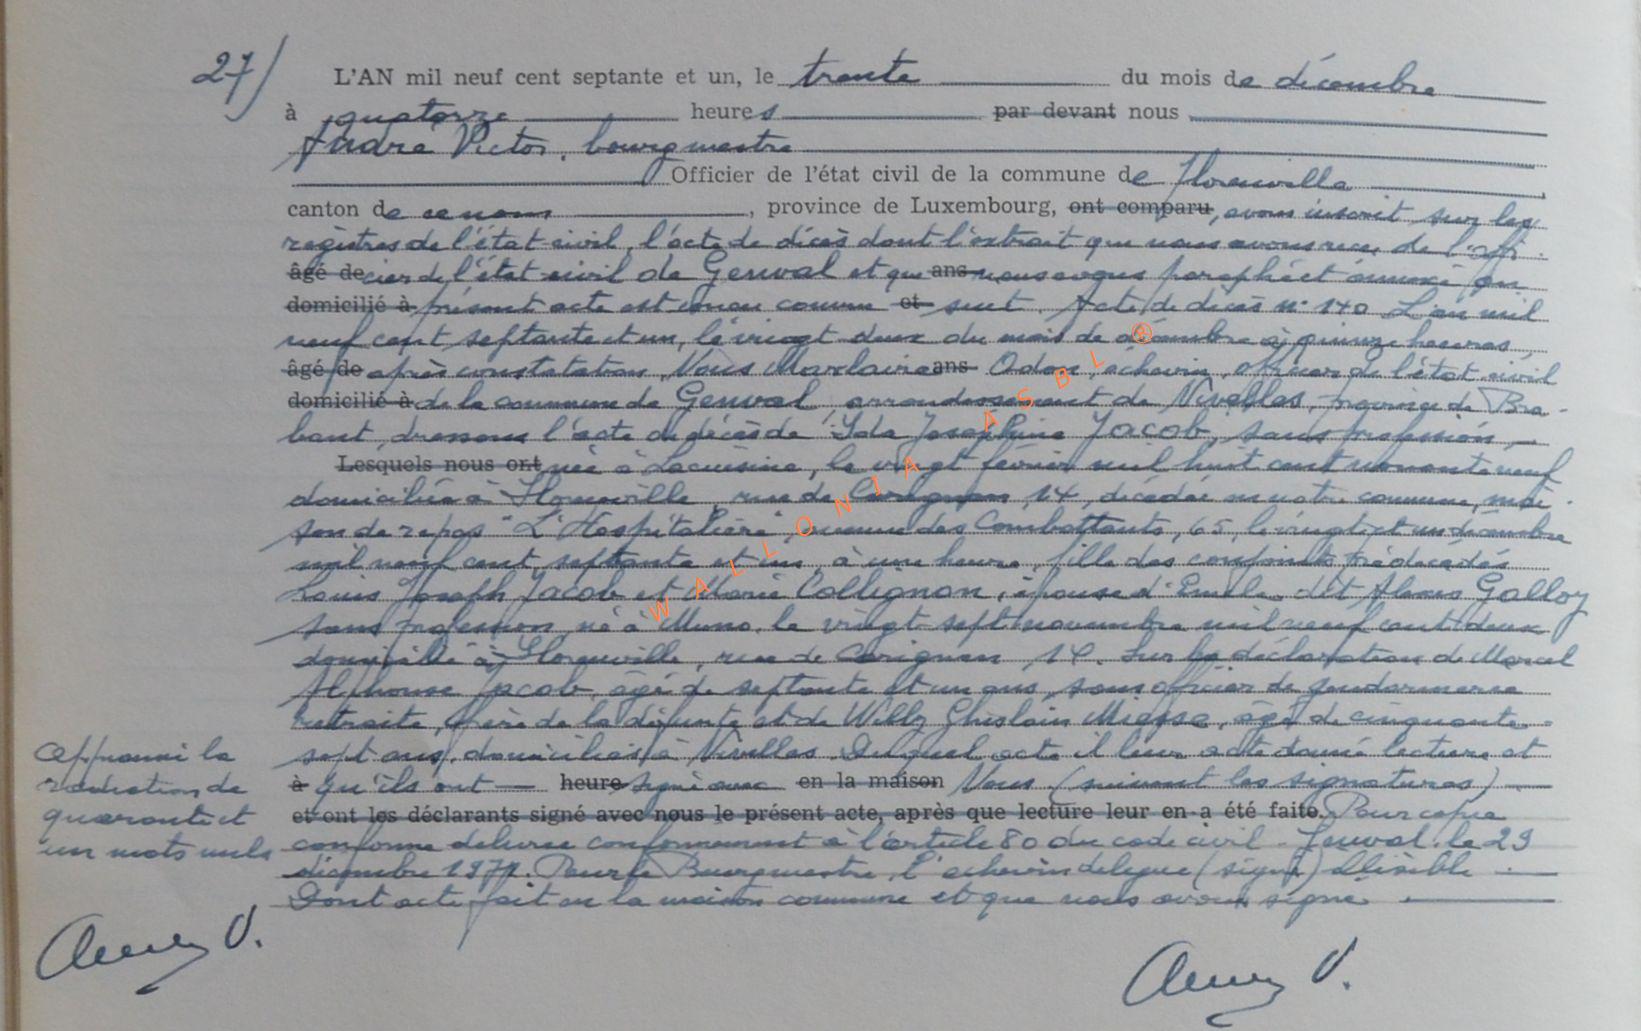 27/ L'AN mil neuf cent septante et un, le trente du mois de décembre
à quatorze heures par devant nous
André Victor, bourgmestre
Officier de l'état civil de la commune de Florenville
canton de ce nom, province de Luxembourg, ont comparu, avons inscrit sur les
registres de l'état civil, l'acte de décès dont l'extrait que nous avons reçu de l'offi-
âgé de cier de l'état civil de Genval et que ans nous avons paraphé et annexé au
domicilié à présent acte est conçu comme et suit. Acte de décès n° 140 L'an mil
neuf cent septante et un, le vingt deux du mois de décembre à quinze heures,
âgé de après constatation, Nous ans Odon, échevin, officier de l'état civil
domicilié à de la commune de Genval, arrondissement de Nivelles, province de Bra-
bant, dressons l'acte de décès de Ida Joséphine Jacob, sans profession,
Lesquels nous ont née à Lacuisine, le vingt février mil huit cent nonante neuf
domiciliée à Florenville, rue de Carignan 14, décédée en notre commune, mai-
son de repos "L'Hospitalière", avenue des Combattants, 65, le vingt et un décembre
mil neuf cent septante et un, à une heure, fille des conjoints prédécédés
Louis Joseph Jacob et Marie Collignon, épouse d'Emile dit Alexis Galloy
sans profession né à Muno, le vingt sept novembre mil neuf cent deux
domicilié à Florenville, rue de Carignan, 14. Sur la déclaration de Marcel
Alphonse Jacob, âgé de septante et un ans, sous officier de gendarmerie
retraité, frère de la défunte et de Willy Ghislain, âgé de cinquante-
sept ans, domiciliés à Nivelles. Duquel acte il leur a été donné lecture et
à qu'ils ont heure signé avec en la maison Nous (suivent les signatures)
et ont les déclarants signé avec nous le présent acte, après que lecture leur en a été faite. Pour copie
conforme délivrée conformément à l'article 80 du code civil. Genval, le 29
décembre 1971. Pour le Bourgmestre, l'échevin délégué (signé) Illisible
Dont acte fait en la maison commune et que nous avons signé.
Approuvé la
radiation de
quarante et
un mots nuls
W A L L O N I A A S B L ®